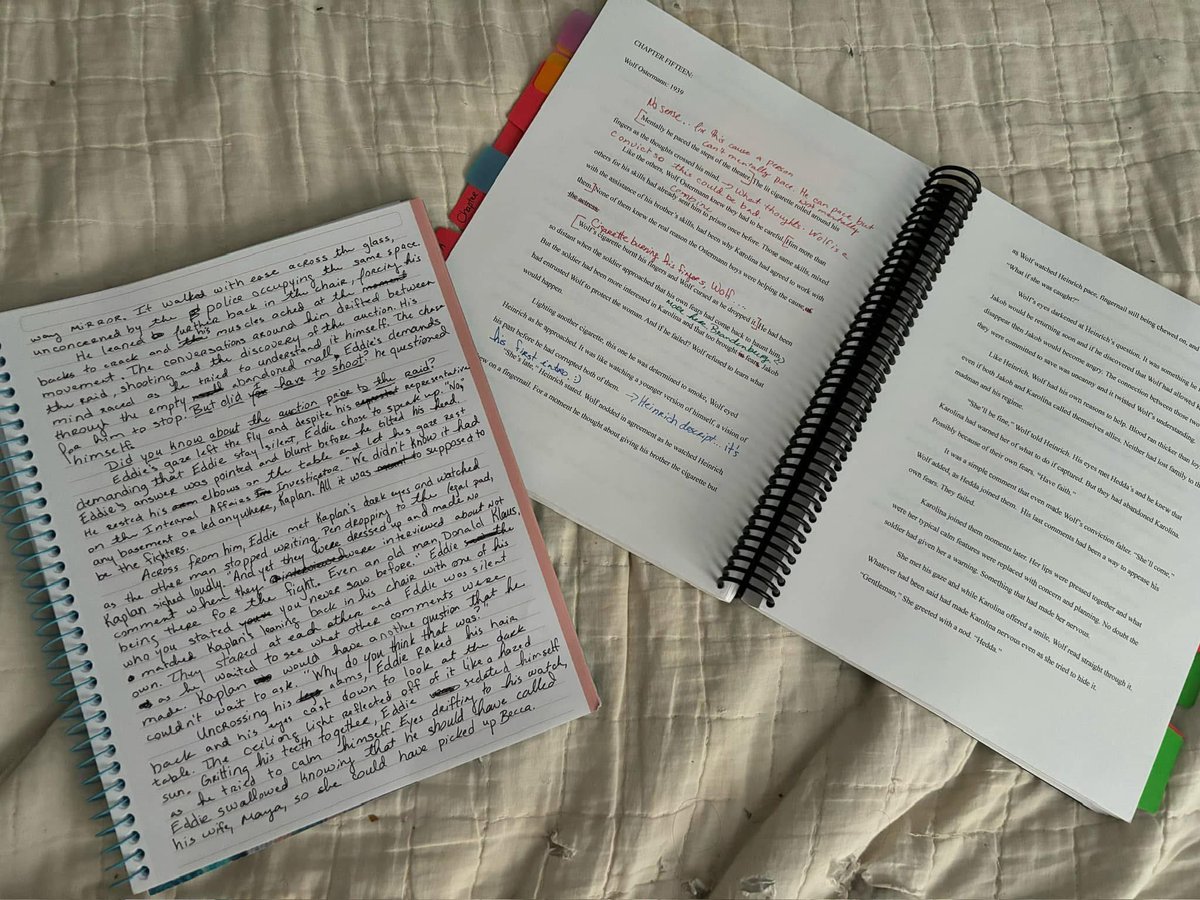 way mirror. It walked with ease across the glass,
unconcerned by the police occupying the same space.
He leaned further back in the chair, forcing his
backs to crack and his muscles ached at the
movement. The conversations around him drifted between
the raid, shooting, and the discovery of the auction. His
mind raced as he tried to understand it himself. The chase
through the empty abandoned mall, Eddie's demands
for him to stop. But did I have to shoot? he questioned
himself.
Did you know about the auction prior to the raid?
Eddie's gaze left the fly and despite his representative
demanding that Eddie stay silent, Eddie chose to speak up. "No,"
Eddie's answer was pointed and blunt before he tilted his head.
He rested his elbows on the table and let his gaze rest
on the Internal Affairs Investigator. "We didn't know it had
any basement or led anywhere, Kaplan. All it was supposed to
be the fighters.
Across from him, Eddie met Kaplan's dark eyes and watched
as the other man stopped writing. Pen dropping to the legal pad,
Kaplan sighed loudly. "And yet they were dressed up and made no
comment when they were interviewed about not
being there for the fight. Even an old man, Donald Klaus,
who you stated you never saw before." Eddie
matched Kaplan's leaning back in his chair with one of his
own. They stared at each other and Eddie was silent
as he waited to see what other comments were
made. Kaplan would have another question that he
couldn't wait to ask. "Why do you think that was?"
Uncrossing his arms, Eddie raked his hair
back and his eyes cast down to look at the dark
table. The ceiling light reflected off of it like a hazed
sun. Gritting his teeth together, Eddie sedated himself
as he tried to calm himself. Eyes drifting to his watch,
Eddie swallowed knowing that he should have called
his wife, Maya, so she could have picked up Becca.
Chapter
CHAPTER FIFTEEN:
Wolf Ostermann: 1939
No sense.. for this cause a person
can't mentally pace. He can pace, but
[Mentally he paced the steps of the theater] The lit cigarette rolled around his
was mentally
fingers as the thoughts crossed his mind. → What thoughts. Wolf is a
convict so this could be bad.
Like the others, Wolf Ostermann knew they had to be careful. [Him more than
combine
others for his skills had already sent him to prison once before. Those same skills, mixed
with the assistance of his brother's skills, had been why Karolina had agreed to work with
them] None of them knew the real reason the Ostermann boys were helping the cause
the actress
Cigarette burning his fingers, Wolf...
[Wolf's cigarette burnt his fingers and Wolf cursed as he dropped it.] He had been
so distant when the soldier approached that his own fears had come back to haunt him.
But the soldier had been more interested in Karolina and that too brought fears. Jakob
had entrusted Wolf to protect the woman. And if he failed? Wolf refused to learn what
would happen.
Lighting another cigarette, this one he was determined to smoke, Wolf eyed
Heinrich as he approached. It was like watching a younger version of himself, a vision of
his past before he had corrupted both of them. → Heinrich descript. it's
his first intro. :)
"She's late." Heinrich stated. Wolf nodded in agreement as he watched Heinrich
on a fingernail. For a moment he thought about giving his brother the cigarette but
as Wolf watched Heinrich pace, fingernail still being chewed on, and
"What if she was caught?"
Wolf's eyes darkened at Heinrich's question. It was something
Jakob would be returning soon and if he discovered that Wolf had allowed
disappear then Jakob would become angry. The connection between those
they were committed to save was uncanny and it twisted Wolf's understanding.
Like Heinrich, Wolf had his own reasons to help. Blood ran thicker than
even if both Jakob and Karolina called themselves allies. Neither had lost family to the
madman and his regime.
"She'll be fine," Wolf told Heinrich. His eyes met Hedda's and he knew that
Karolina had warned her of what to do if captured. But they had abandoned Karolina.
Possibly because of their own fears. "Have faith."
It was a simple comment that even made Wolf's conviction falter. "She'll come."
Wolf added, as Hedda joined them. His last comments had been a way to appease his
own fears. They failed.
Karolina joined them moments later. Her lips were pressed together and what
were her typical calm features were replaced with concern and planning. No doubt the
soldier had given her a warning. Something that had made her nervous.
She met his gaze and while Karolina offered a smile, Wolf read straight through it.
Whatever had been said had made Karolina nervous even as she tried to hide it.
"Gentleman," She greeted with a nod. "Hedda."